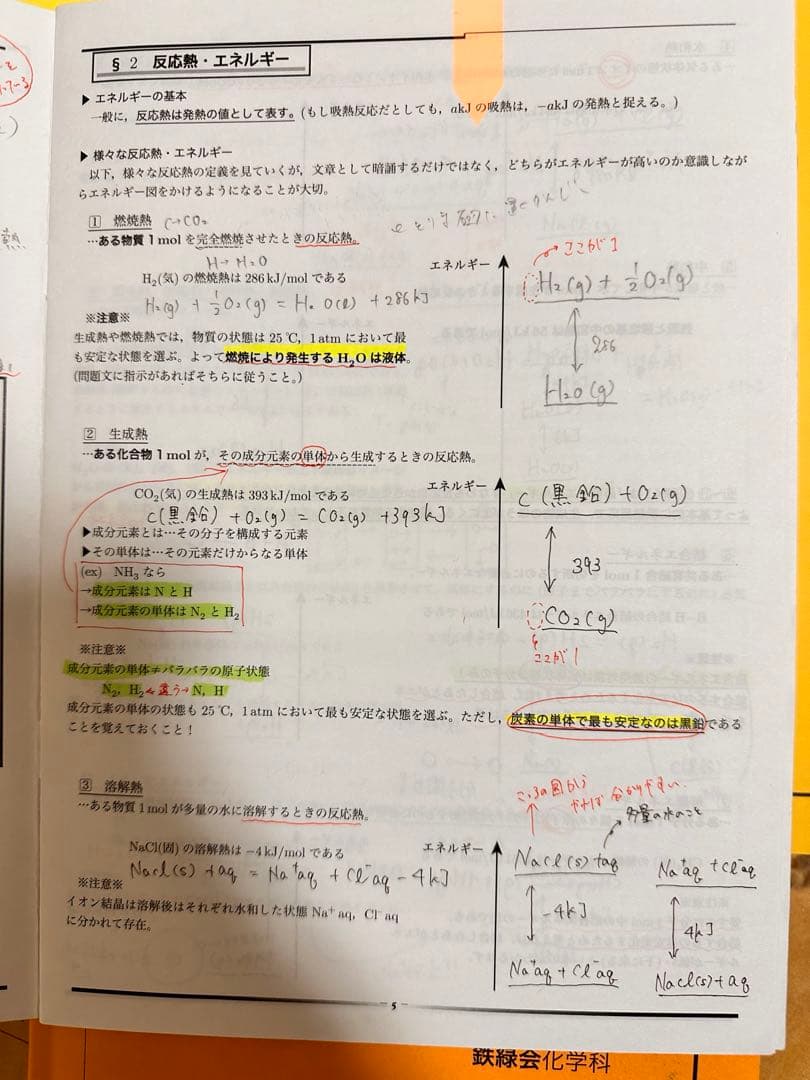 § 2 反応熱・エネルギー
▶ エネルギーの基本
一般に，反応熱は発熱の値として表す。(もし吸熱反応だとしても，akJ の吸熱は，−akJ の発熱と捉える。)
▶ 様々な反応熱・エネルギー
以下，様々な反応熱の定義を見ていくが，文章として暗誦するだけではなく，どちらがエネルギーが高いのか意識しなが
らエネルギー図をかけるようになることが大切。
1 燃焼熱 C→CO₂
…ある物質 1 mol を完全燃焼させたときの反応熱。
H→H₂O
H₂(気) の燃焼熱は 286 kJ/mol である
H₂(g) + 1/2 O₂(g) = H₂O(l) + 286kJ
※注意※
生成熱や燃焼熱では，物質の状態は 25 ℃，1 atm において最
も安定な状態を選ぶ。よって燃焼により発生する H₂O は液体。
(問題文に指示があればそちらに従うこと。)
エネルギー
ここが1
H₂(g) + 1/2 O₂(g)
286
H₂O(g)
2 生成熱
…ある化合物 1 mol が，その成分元素の単体から生成するときの反応熱。
CO₂(気) の生成熱は 393 kJ/mol である
C(黒鉛) + O₂(g) = CO₂(g) + 393kJ
▶成分元素とは…その分子を構成する元素
▶その単体は…その元素だけからなる単体
(ex) NH₃ なら
→成分元素は N と H
→成分元素の単体は N₂ と H₂
エネルギー
C(黒鉛) + O₂(g)
393
CO₂(g)
ここが1
※注意※
成分元素の単体≠バラバラの原子状態
N₂，H₂ ← 違う → N，H
成分元素の単体の状態も 25 ℃，1 atm において最も安定な状態を選ぶ。ただし，炭素の単体で最も安定なのは黒鉛である
ことを覚えておくこと！
3 溶解熱
…ある物質 1 mol が多量の水に溶解するときの反応熱。
NaCl(固) の溶解熱は −4 kJ/mol である
NaCl(s) + aq = Na⁺aq + Cl⁻aq − 4kJ
※注意※
イオン結晶は溶解後はそれぞれ水和した状態 Na⁺ aq，Cl⁻ aq
に分かれて存在。
分かりやすい
多量の水のこと
エネルギー
NaCl(s) + aq
-4kJ
Na⁺aq + Cl⁻aq
Na⁺aq + Cl⁻aq
4kJ
NaCl(s) + aq
5
鉄緑会化学科